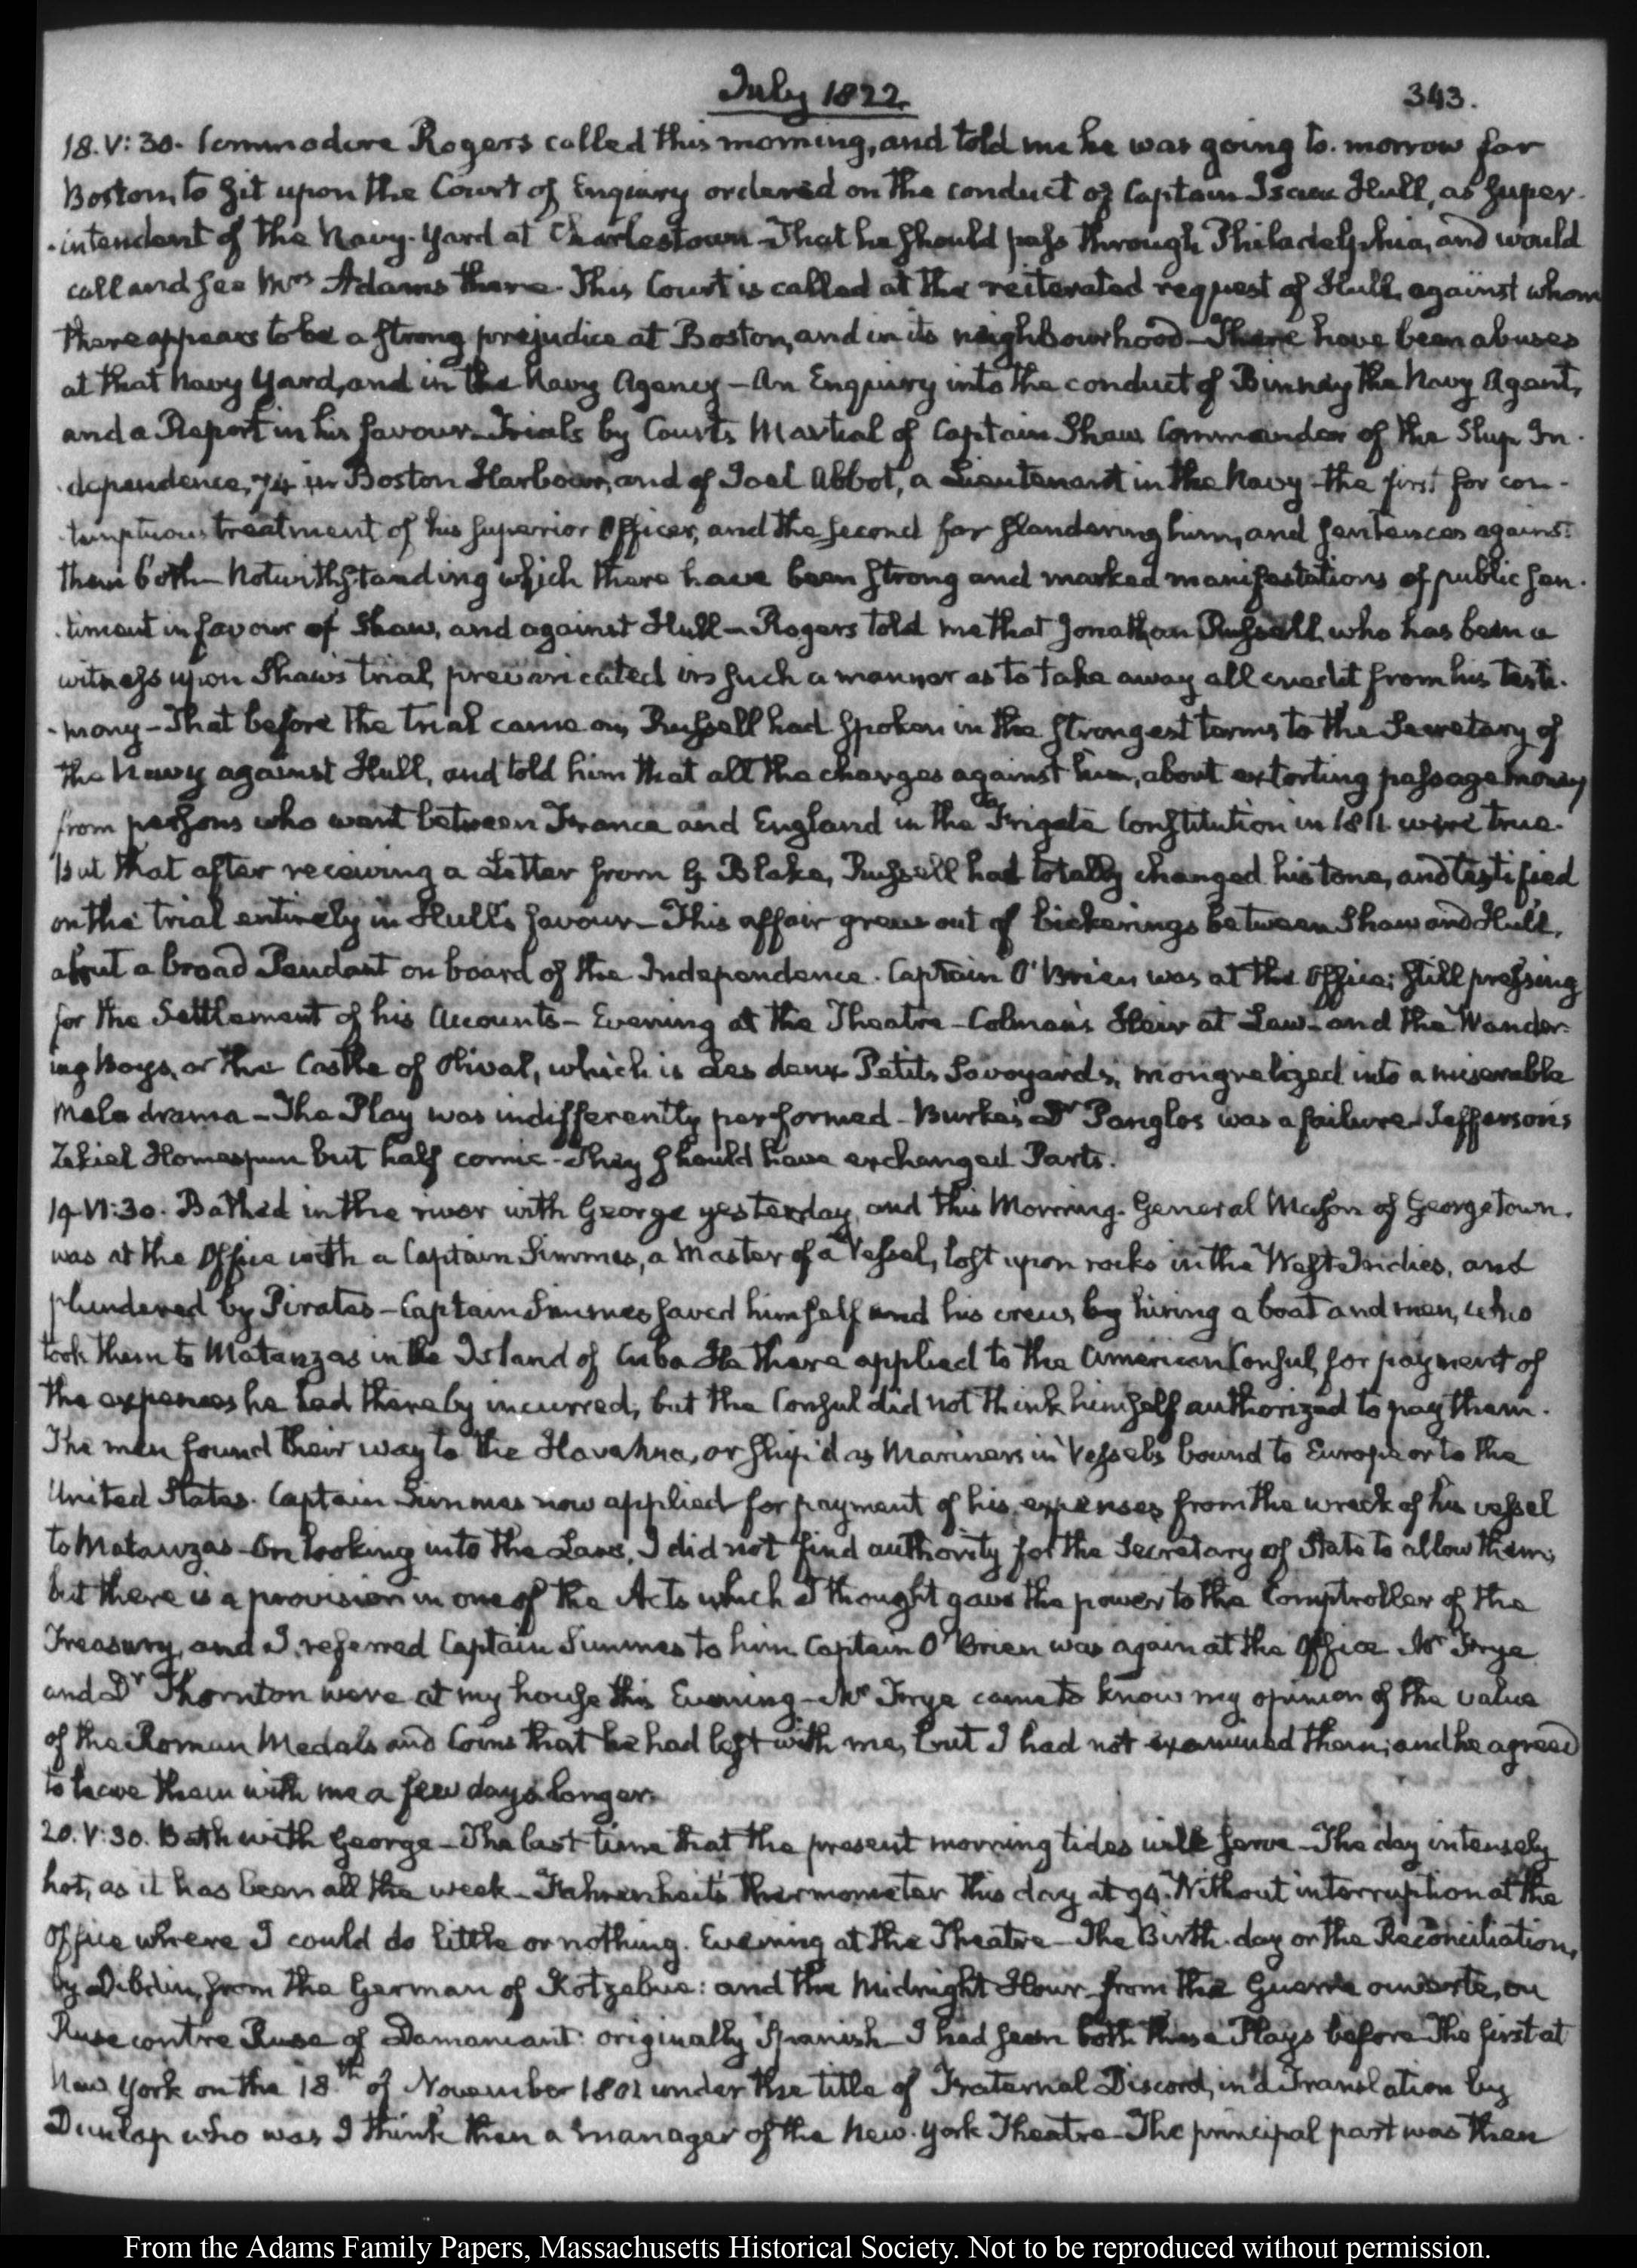 July 1822.
343.
18. V:30. Commodore Rogers called this morning, and told me he was going to-morrow for
Boston, to sit upon the Court of Enquiry ordered on the conduct of Captain Isaac Hull, as Super-
-intendent of the Navy-Yard at Charlestown - That he should pass through Philadelphia, and would
call and see Mrs Adams there. This Court is called at the reiterated request of Hull, against whom
there appears to be a strong prejudice at Boston, and in its neighbourhood - There have been abuses
at that Navy Yard, and in the Navy Agency - An Enquiry into the conduct of Binney the Navy Agent,
and a Report in his favour - Trials by Courts Martial of Captain Shaw Commander of the Ship In-
-dependence, 74 in Boston Harbour, and of Joel Abbot, a Lieutenant in the Navy - the first for con-
-temptuous treatment of his superior Officer, and the second for slandering him, and sentences against
them both - Notwithstanding which there have been strong and marked manifestations of public sen-
-timent in favour of Shaw, and against Hull - Rogers told me that Jonathan Russell, who has been a
witness upon Shaw's trial, prevaricated in such a manner as to take away all credit from his testi-
-mony - That before the trial came on, Russell had spoken in the strongest terms to the Secretary of
the Navy against Hull, and told him that all the charges against him, about extorting passage money
from persons who went between France and England in the Frigate Constitution in 1811 were true.
But that after receiving a Letter from G. Blake, Russell had totally changed his tone, and testified
on the trial entirely in Hull's favour - This affair grew out of bickerings between Shaw and Hull,
about a broad Pendant on board of the Independence. Captain O'Brien was at the Office; still pressing
for the Settlement of his Accounts - Evening at the Theatre - Colman's Heir at Law - and the Wander-
ing Boys, or the Castle of Olival, which is Les deux Petits Savoyards, mongrelized into a miserable
Melo drama - The Play was indifferently performed - Burke's Dr Panglos was a failure - Jefferson's
Zekiel Homespun but half comic - They should have exchanged Parts.
19. VI:30. Bathed in the river with George yesterday, and this Morning. General Mason of Georgetown.
was at the Office with a Captain Simmes, a Master of a Vessel, lost upon rocks in the West-Indies, and
plundered by Pirates - Captain Simmes saved himself and his crew, by hiring a boat and men, who
took them to Matanzas in the Island of Cuba He there applied to the American Consul, for payment of
the expences he had thereby incurred, but the Consul did not think himself authorized to pay them.
The men found their way to the Havanna, or ship'd as Mariners in Vessels bound to Europe or to the
United States. Captain Simmes now applied for payment of his expenses from the wreck of his vessel
to Matanzas - On looking into the Laws, I did not find authority for the Secretary of State to allow them;
but there is a provision in one of the Acts which I thought gave the power to the Comptroller of the
Treasury, and I referred Captain Simmes to him. Captain O'Brien was again at the Office. Mr Frye
and Dr Thornton were at my house this Evening - Mr Frye came to know my opinion of the value
of the Roman Medals and Coins that he had left with me, but I had not examined them; and he agreed
to leave them with me a few days longer.
20. V:30. Bath with George - The last time that the present morning tides will serve - The day intensely
hot, as it has been all the week - Fahrenheit's thermometer this day at 94. Without interruption at the
Office where I could do little or nothing. Evening at the Theatre - The Birth-day or the Reconciliation,
by Dibdin, from the German of Kotzebue: and the Midnight Hour from the Guerre ouverte, ou
Ruse contre Ruse of Dumaniant: originally Spanish - I had seen both these Plays before - The first at
New York on the 18th of November 1801 under the title of Fraternal Discord, in a Translation by
Dunlap who was I think then a manager of the New-York Theatre - The principal part was then
From the Adams Family Papers, Massachusetts Historical Society. Not to be reproduced without permission.